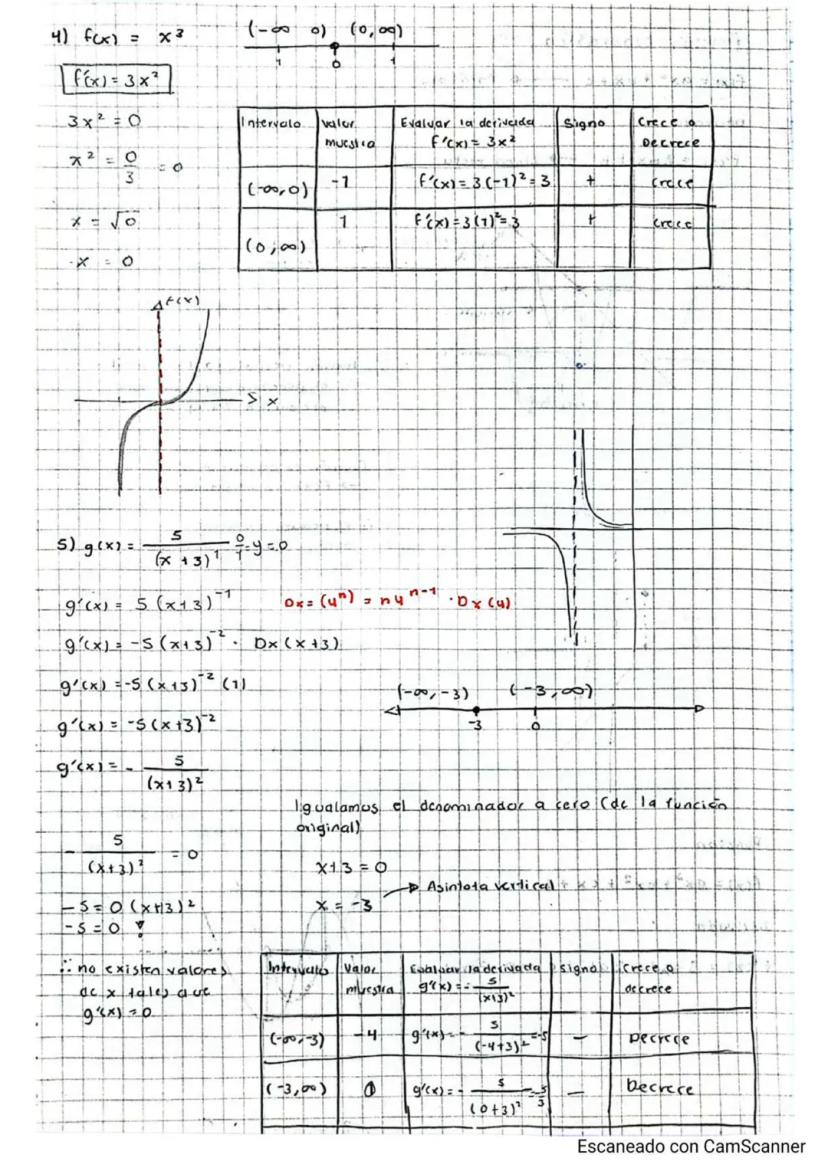 4) f(x) = x³
(-∞ 0) (0, ∞)
-1 0 1
f'(x) = 3x²
3x² = 0
x² = 0/3 = 0
x = √0
x = 0
Intervalo | Valor muestra | Evaluar la derivada f'(x) = 3x² | Signo | Crece o Decrece
(-∞, 0) | -1 | f'(x) = 3(-1)² = 3 | + | crece
(0, ∞) | 1 | f'(x) = 3(1)² = 3 | + | crece
f(x)
x
5) g(x) = 5/(x+3)¹ 0/1 = y = 0
g'(x) = 5(x+3)⁻¹
Dx = (uⁿ) = nuⁿ⁻¹ · Dx(u)
g'(x) = -5(x+3)⁻² · Dx(x+3)
g'(x) = -5(x+3)⁻² (1)
g'(x) = -5(x+3)⁻²
g'(x) = - 5/(x+3)²
(-∞, -3) (-3, ∞)
-3 0
Igualamos el denominador a cero (de la función
original)
x+3 = 0
x = -3 → Asíntota vertical
- 5/(x+3)² = 0
-5 = 0 (x+3)²
-5 = 0 !
∴ no existen valores
de x tales que
g'(x) = 0
Intervalo | Valor muestra | Evaluar la derivada g'(x) = - 5/(x+3)² | Signo | Crece o decrece
(-∞, -3) | -4 | g'(x) = - 5/(-4+3)² = -5 | - | Decrece
(-3, ∞) | 0 | g'(x) = - 5/(0+3)² = -5/3 | - | Decrece
Escaneado con CamScanner